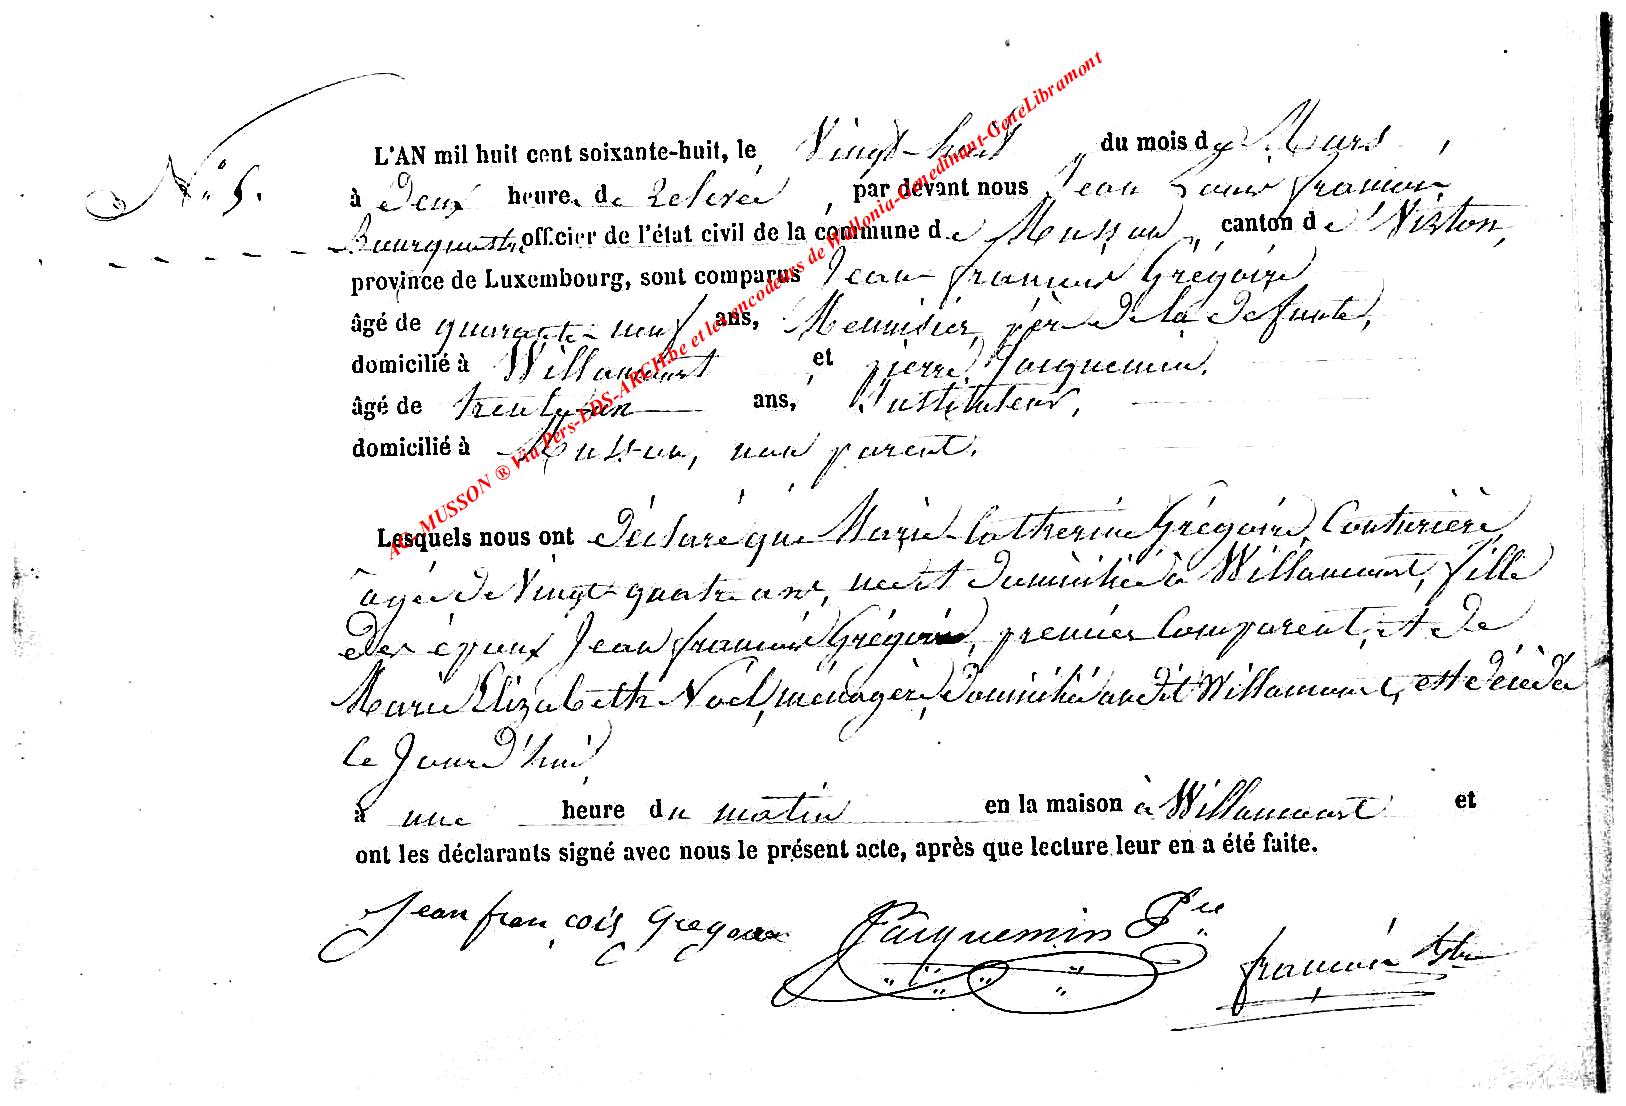 N° 5.
L'AN mil huit cent soixante-huit, le Vingt-huit du mois de Mars,
à Deux heure. de relevée, par devant nous Jean Louis françois,
Bourgmestre officier de l'état civil de la commune de Musson, canton de Virton,
province de Luxembourg, sont comparus Jean françois Grégoire
âgé de quarante-neuf ans, Menuisier, père de la defunte,
domicilié à Willancourt et pierre Jacquemin,
âgé de trente-un ans, Instituteur,
domicilié à Musson, non parent.
Lesquels nous ont déclaré que Marie-Catherine Grégoire, Couturière,
agée de Vingt-quatre ans, née et domiciliée à Willancourt, fille
des époux Jean françois Grégoire, premier Comparent, et de
Marie Elizabeth Noël, ménagère, domiciliée audit Willancourt, est décédée
ce Jourd'hui
à une heure du matin en la maison à Willancourt et
ont les déclarants signé avec nous le présent acte, après que lecture leur en a été faite.
Jean françois Gregoire Jacquemin Pre françois
AC MUSSON ® Via Pers-EDS-ARCH.be et les encodeurs de Wallonia-Genedinant-GeneLibramont